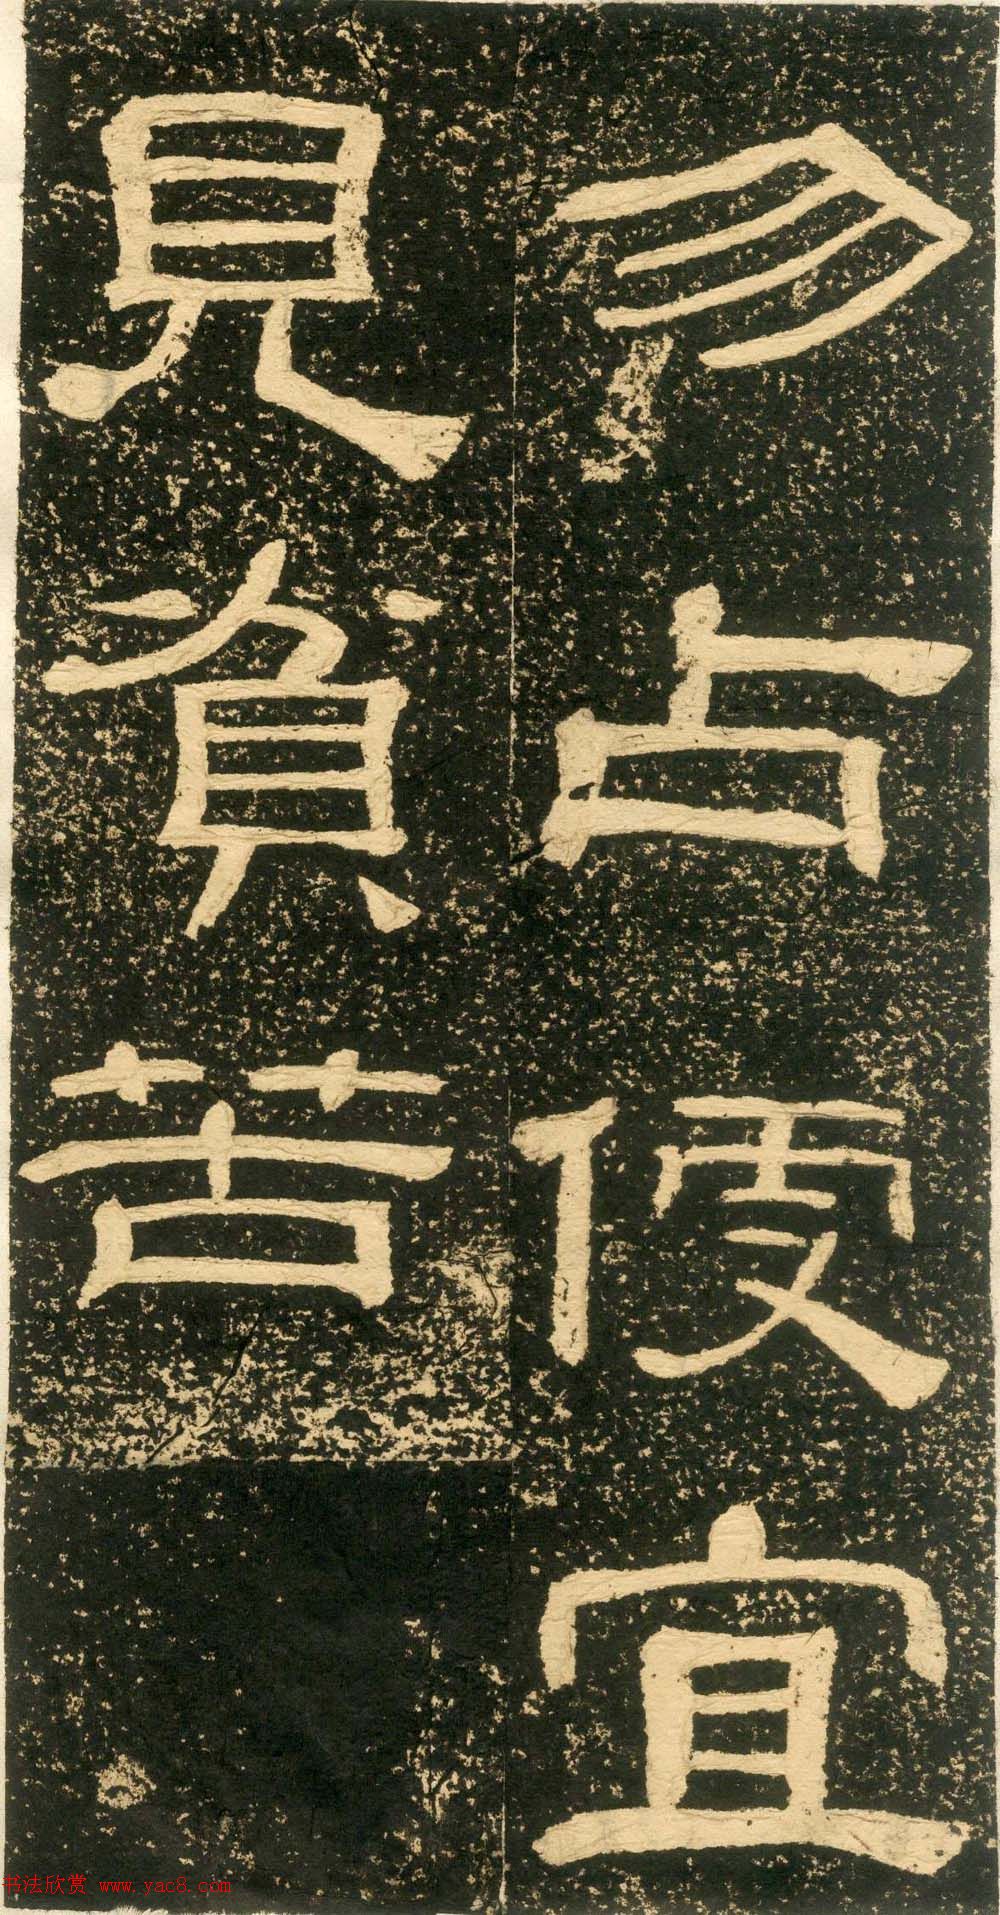 勿占便宜
見貧苦
书法欣赏 www.yac8.com